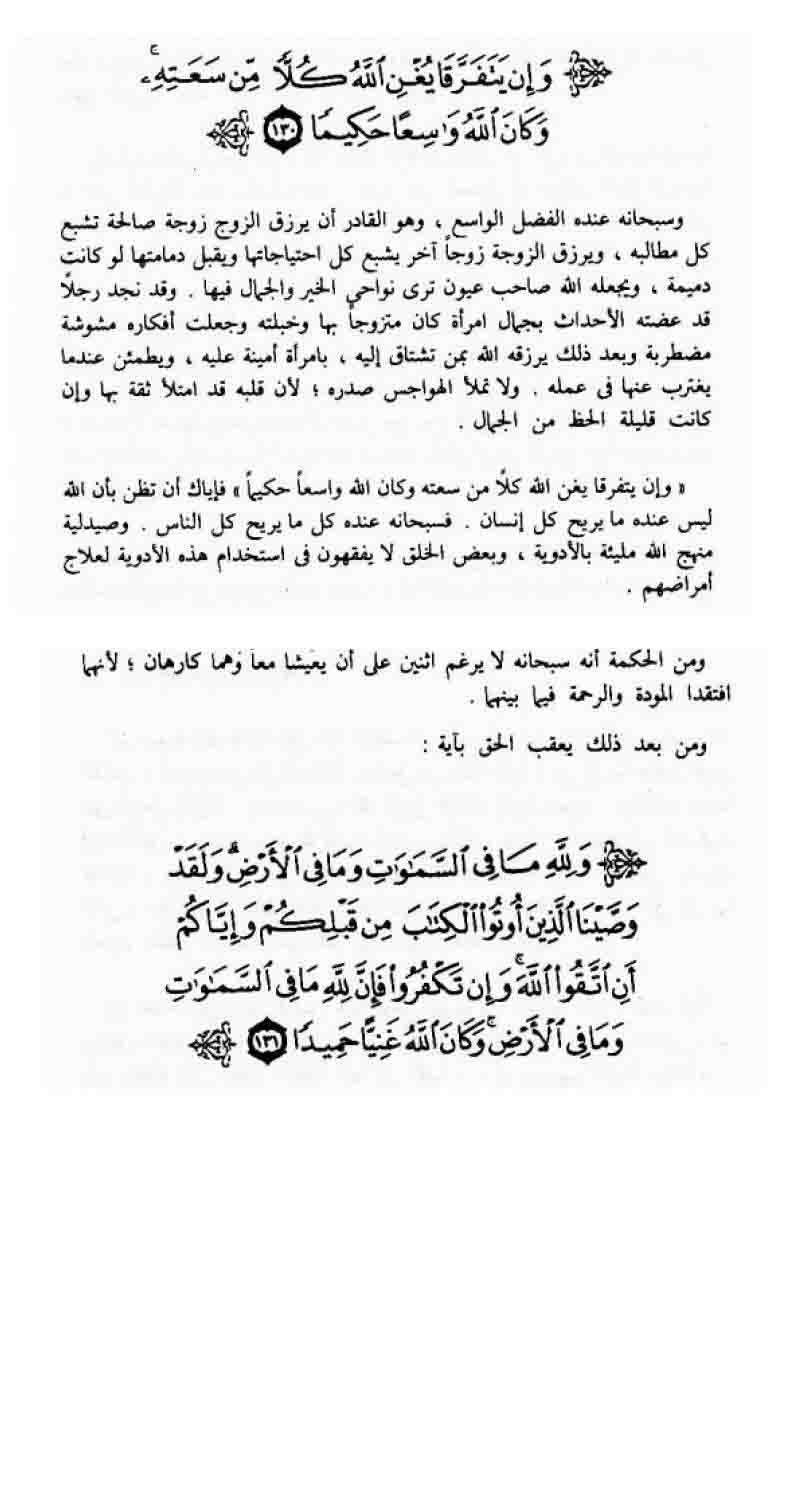 وَإِن يَتَفَرَّقَا يُغْنِ ٱللَّهُ كُلًّا مِّن سَعَتِهِۦ ۚ
وَكَانَ ٱللَّهُ وَٰسِعًا حَكِيمًا ١٣٠
وسبحانه عنده الفضل الواسع ، وهو القادر أن يرزق الزوج زوجة صالحة تشبع
كل مطالبه ، ويرزق الزوجة زوجاً آخر يشبع كل احتياجاتها ويقبل دمامتها لو كانت
دميمة ، ويجعله الله صاحب عيون ترى نواحى الخير والجمال فيها . وقد نجد رجلًا
قد عضته الأحداث بجمال امرأة كان متزوجاً بها وخبلته وجعلت أفكاره مشوشة
مضطربة وبعد ذلك يرزقه الله بمن تشتاق إليه ، بامرأة أمينة عليه ، ويطمئن عندما
يغترب عنها فى عمله . ولا تملأ الهواجس صدره ؛ لأن قلبه قد امتلأ ثقة بها وإن
كانت قليلة الحظ من الجمال .
« وإن يتفرقا يغن الله كلًا من سعته وكان الله واسعاً حكيماً » فإياك أن تظن بأن الله
ليس عنده ما يريح كل إنسان . فسبحانه عنده كل ما يريح كل الناس . وصيدلية
منهج الله مليئة بالأدوية ، وبعض الخلق لا يفقهون فى استخدام هذه الأدوية لعلاج
أمراضهم .
ومن الحكمة أنه سبحانه لا يرغم اثنين على أن يعيشا معا وهما كارهان ؛ لأنهما
افتقدا المودة والرحمة فيما بينهما .
ومن بعد ذلك يعقب الحق بآية :
وَلِلَّهِ مَا فِى ٱلسَّمَٰوَٰتِ وَمَا فِى ٱلْأَرْضِ ۗ وَلَقَدْ
وَصَّيْنَا ٱلَّذِينَ أُوتُوا۟ ٱلْكِتَٰبَ مِن قَبْلِكُمْ وَإِيَّاكُمْ
أَنِ ٱتَّقُوا۟ ٱللَّهَ ۚ وَإِن تَكْفُرُوا۟ فَإِنَّ لِلَّهِ مَا فِى ٱلسَّمَٰوَٰتِ
وَمَا فِى ٱلْأَرْضِ ۚ وَكَانَ ٱللَّهُ غَنِيًّا حَمِيدًا ١٣١